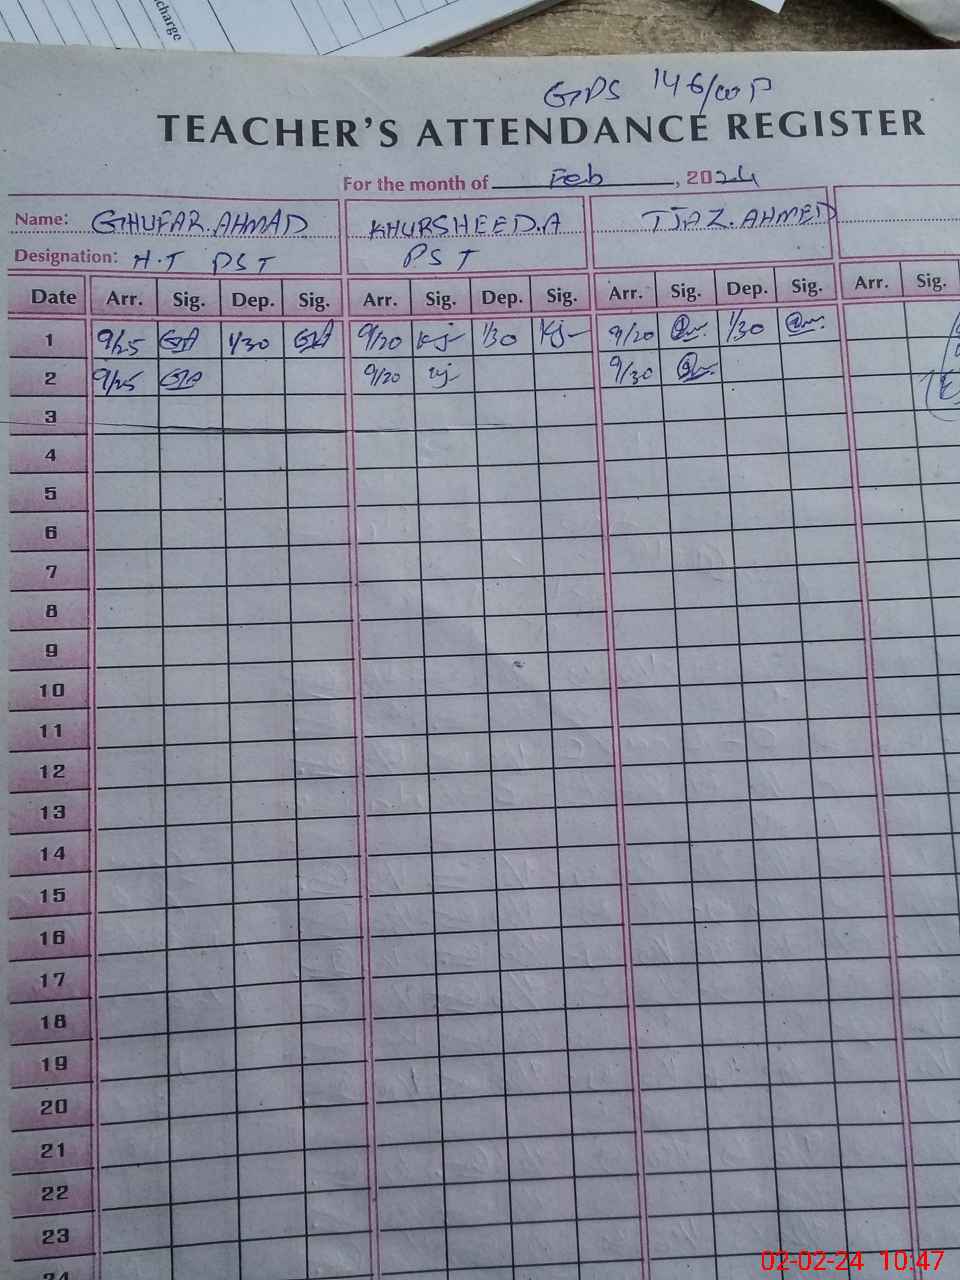 charge
GPS 146/WP
TEACHER'S ATTENDANCE REGISTER
For the month of Feb, 2024
Name: GHUFAR.AHMAD KHURSHEED.A IJAZ.AHMED
Designation: H.T PST PST
Date Arr. Sig. Dep. Sig. Arr. Sig. Dep. Sig. Arr. Sig. Dep. Sig. Arr. Sig.
1 9/25 GA 1/30 GA 9/20 Kj 1/30 Kj 9/20 1/30
2 9/25 GA 9/20 9/30
3
4
5
6
7
8
9
10
11
12
13
14
15
16
17
18
19
20
21
22
23
24
02-02-24 10:47